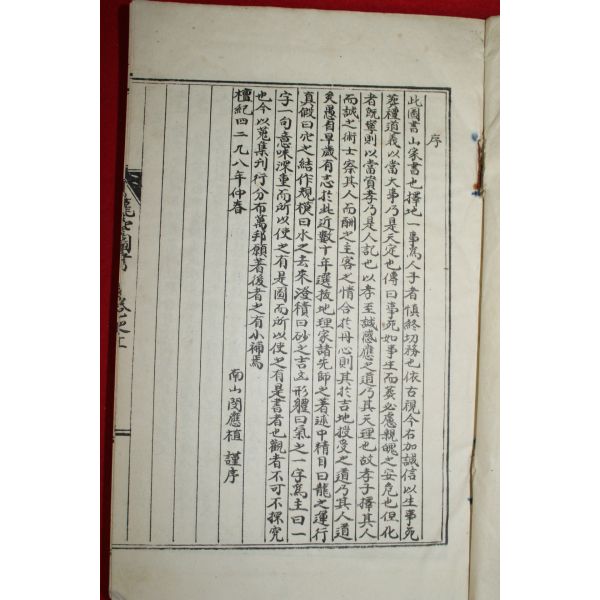 序
此圖書山家書也擇地一事爲人子者愼終切務也依古視今右加誠信以生事死
葬禮道義以當大事乃是天定也傳曰事死如事生而葬必慮親魄之安危也但化
者旣寧則以當賞孝乃是人記也以孝至誠感應之道乃其天理也故孝子擇其人
而誠之術士察其人而酬之主客之情合於丹心則其於吉地授受之道乃其人道
矣愚自早歲有志於此近數十年選拔地理家諸先師之著述中精目曰龍之運行
眞假曰穴之結作規模曰水之去來澄積曰砂之吉凶形軆曰氣之一字爲主曰一
字一句意味深重而所以使之有是圖而所以使之有是書者也觀者不可不探究
也今以蒐集刊行分布萬邦願著後者之有小補焉
檀紀四二九八年仲春
南山閔應植 謹序
圖書
卷之上